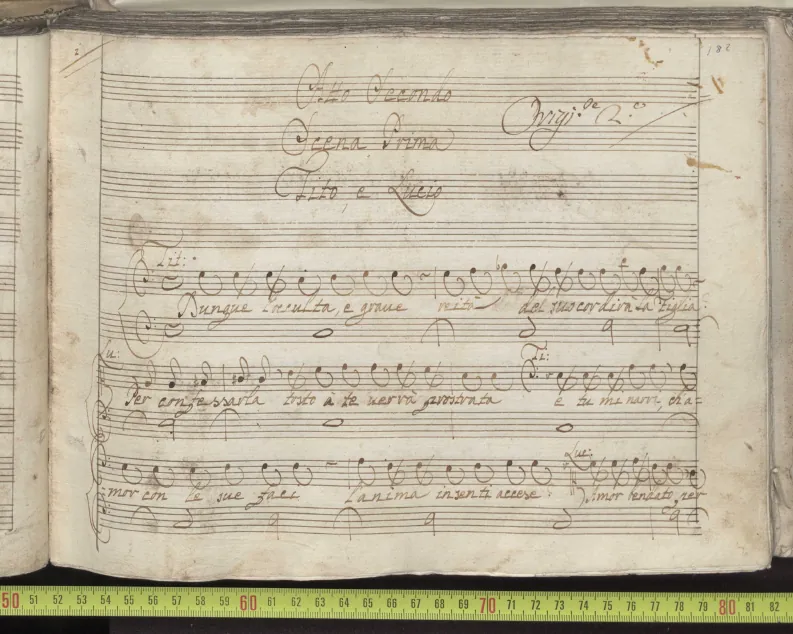 2
182
Atto Secondo
Origi:de 2.o
Scena Prima
Tito, e Lucio
Tit:
Dunque l'occulta, e graue reità del suo cor dirà la figlia
Lu: Ti:
Per confessarla tosto à te uerrà prostrata è tu mi narri, ch'a=
Luc:
mor con le sue faci l'anima in senti accese Amor bendato, per
50 51 52 53 54 55 56 57 58 59 60 61 62 63 64 65 66 67 68 69 70 71 72 73 74 75 76 77 78 79 80 81 82